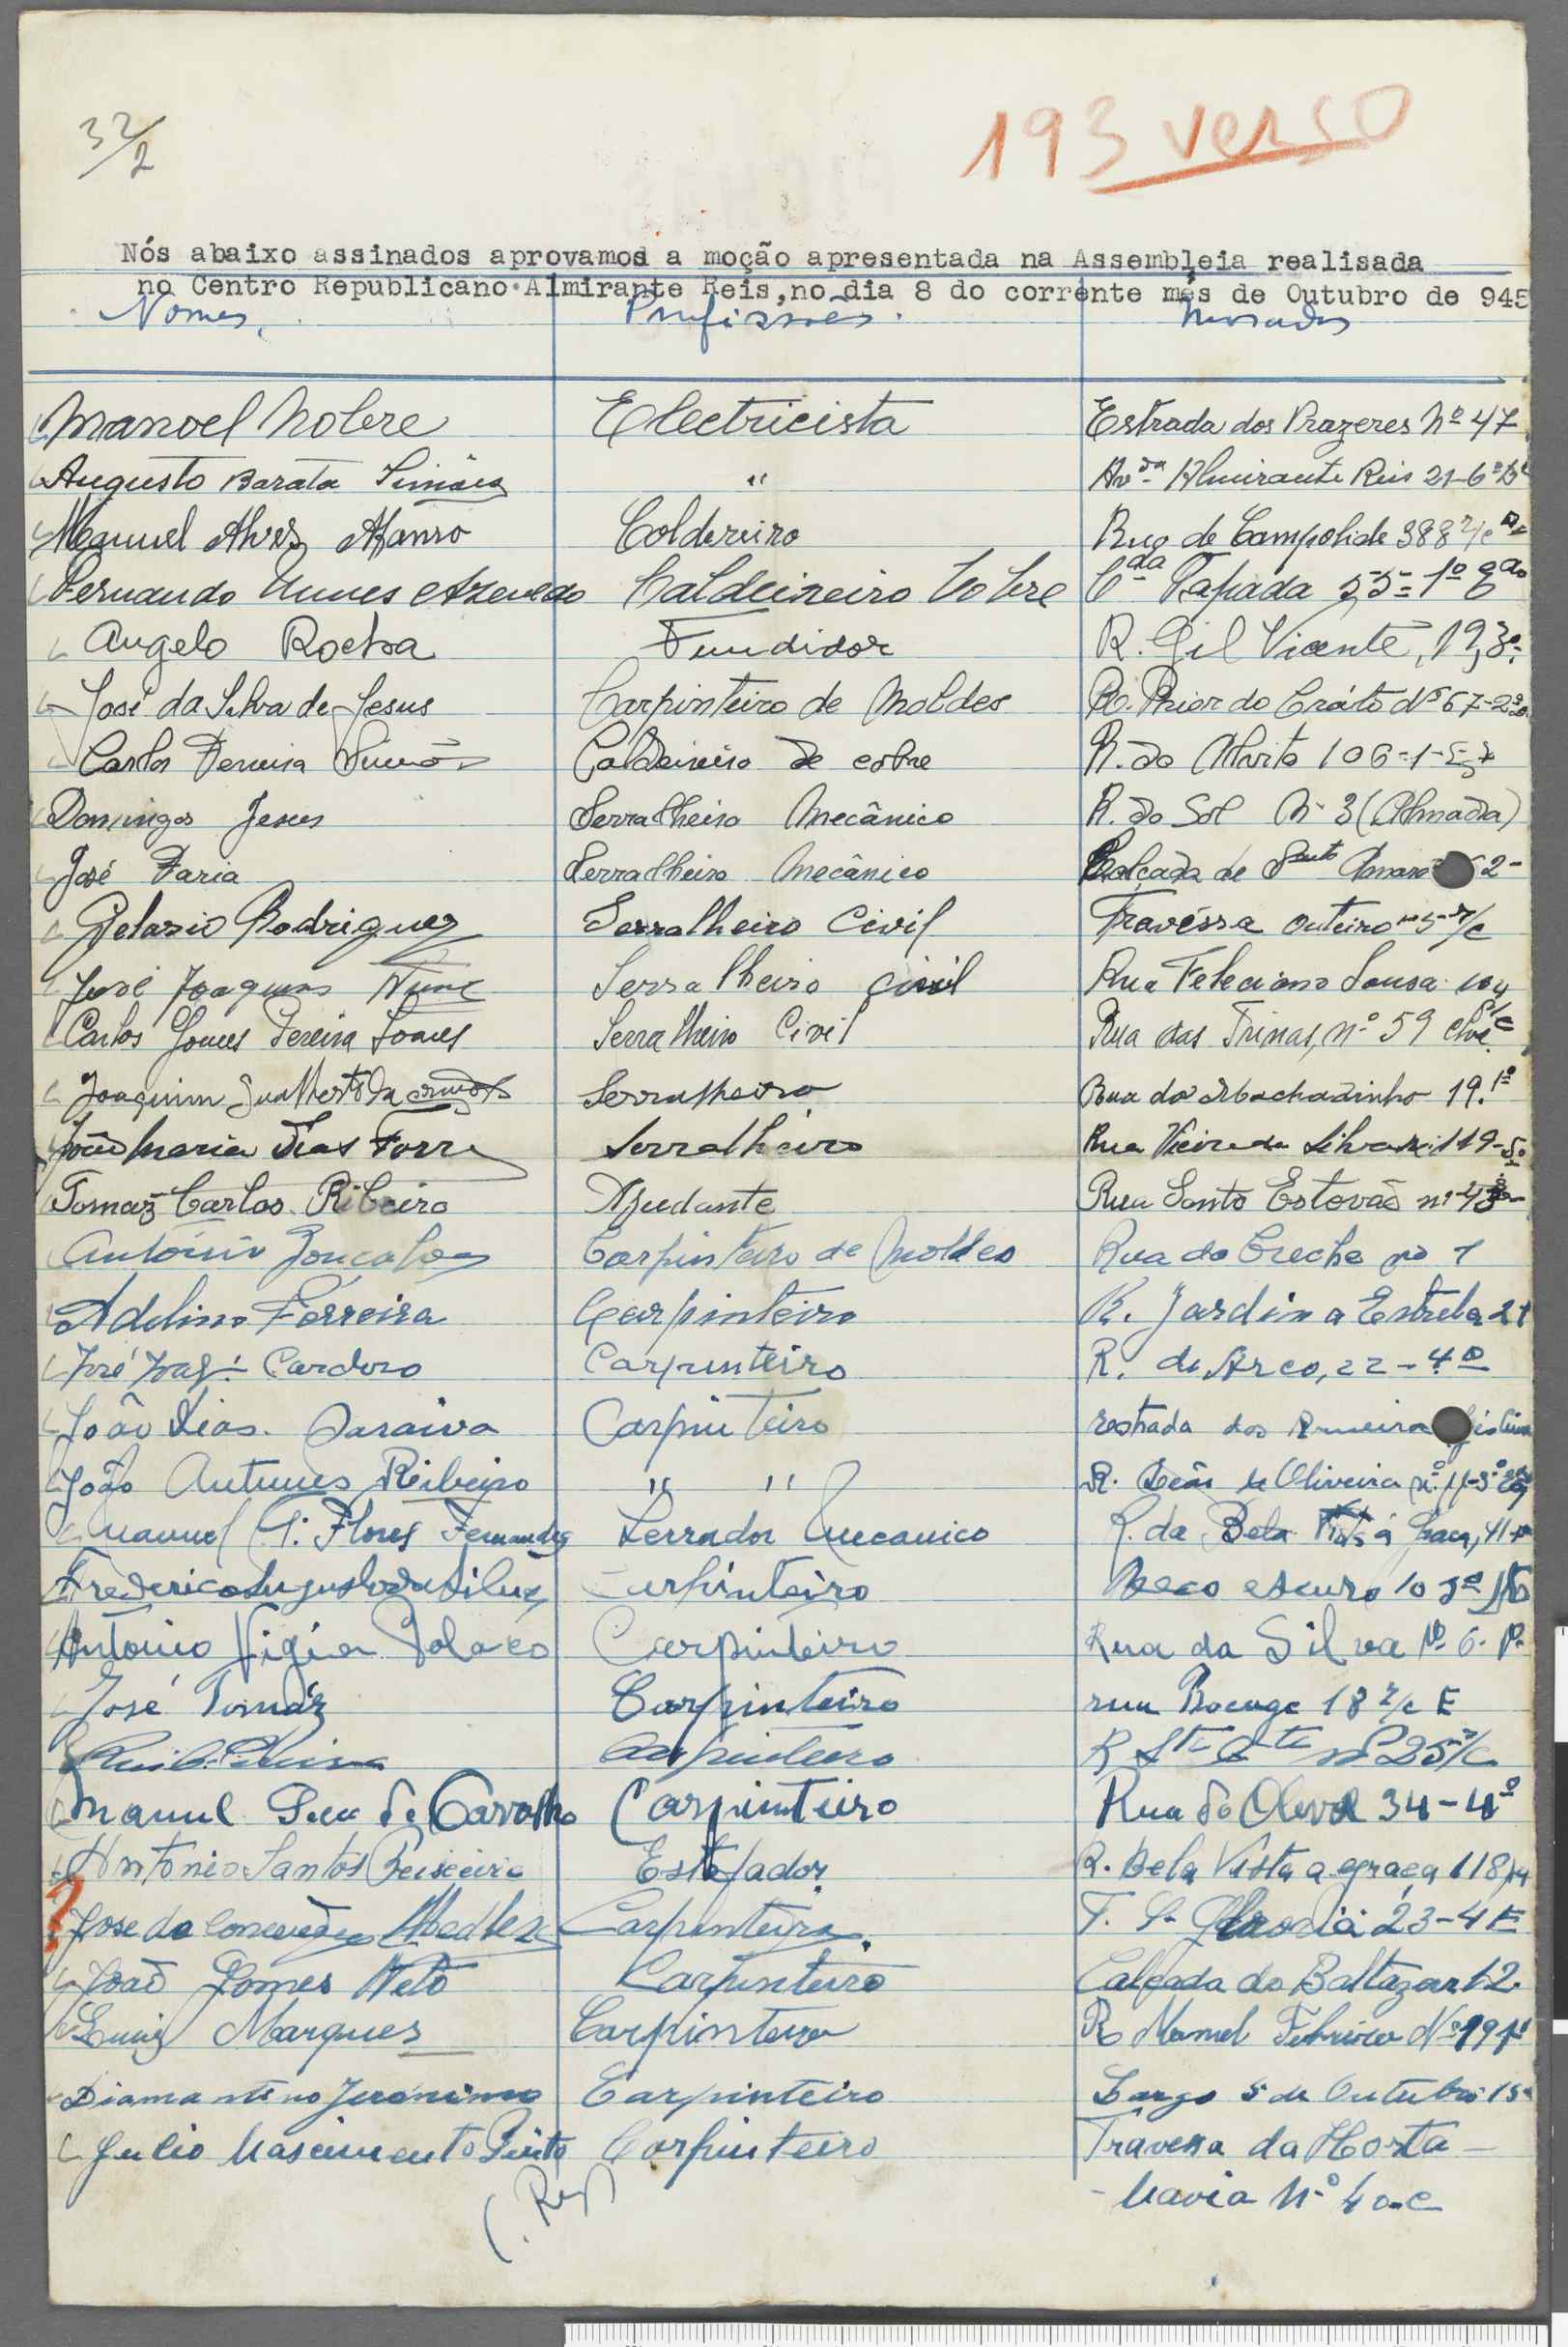 32/2
193 verso
Nós abaixo assinados aprovamos a moção apresentada na Assembleia realisada
no Centro Republicano Almirante Reis, no dia 8 do corrente mês de Outubro de 945
Nomes. Profissões. Moradas
Manoel Nobre Electricista Estrada dos Prazeres Nº 47
Augusto Barata Simões " Avda Almirante Reis 21-6º
Manuel Alves Afonso Coldereiro Rua de Campolide 388 r/c
Fernando Nunes Azevedo Caldeireiro Cobre Cda Tapada 55-1º
Angelo Rocha Fundidor R. Gil Vicente, 19, 3º
José da Silva de Jesus Carpinteiro de Moldes R. Prior do Cráto Nº 67-2º
Carlos Ferreira Simões Caldeireiro de cobre R. do Alvito 106-1-
Domingos Jesus Serralheiro Mecânico R. do Sol Nº 3 (Almada)
José Faria Serralheiro Mecânico Calçada de Santo Amaro 2-
Gelasio Rodrigues Serralheiro Civil Travéssa Outeiro nº 5-r/c
José Joaquim Nune Serralheiro civil Rua Feleciano Sousa 104
Carlos Gomes Pereira Soares Serralheiro Civil Rua das Trinas, nº 59 r/c
Joaquim Serralheiro Rua do Machadinho 19.1º
João Maria Dias Torre Serralheiro Rua Vieira da Silva 119-5º
Tomaz Carlos Ribeiro Ajudante Rua Santo Estovão nº
António Gonçalves Carpinteiro de Moldes Rua da Creche nº 1
Adelino Ferreira Carpinteiro R. Jardim a Estrela 21
José Joaqº Cardoso Carpinteiro R. do Arco, 22-4º
João Dias Saraiva Carpinteiro estrada dos
João Antunes Ribeiro " " R. Leão de Oliveira nº 11-3º
Manuel Flores Fernandes Serrador Mecanico R. da Bela Vista á Graça, 41
Frederico Augusto da Silva Carpinteiro Beco escuro 10 3º
Antonio Vigia Polaco Carpinteiro Rua da Silva Nº 6-1º
José Tomáz Carpinteiro rua Bocage 18 r/c E
Carpinteiro R Sta nº 25 r/c
Manuel de Carvalho Carpinteiro Rua do Olival 34-4º
Antonio Santos Estofador R. Bela Vista a graça 118
José da Conceição Carpinteiro T. 23-4 E
João Gomes Neto Carpinteiro Calçada do Baltazar 12
Luiz Marques Carpinteiro R Manuel Nº 19
Diamantino Jeronimo Carpinteiro Largo 5 de Outubro 15
Julio Nascimento Pinto Carpinteiro Travessa da Horta
Navia Nº 40-C